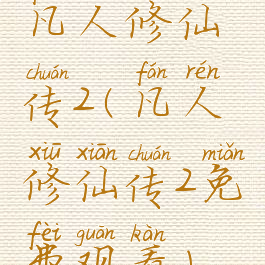 凡人修仙
chuán fán rén
传2(凡人
xiū xiān chuán miǎn
修仙传2免
fèi guān kàn
费观看)